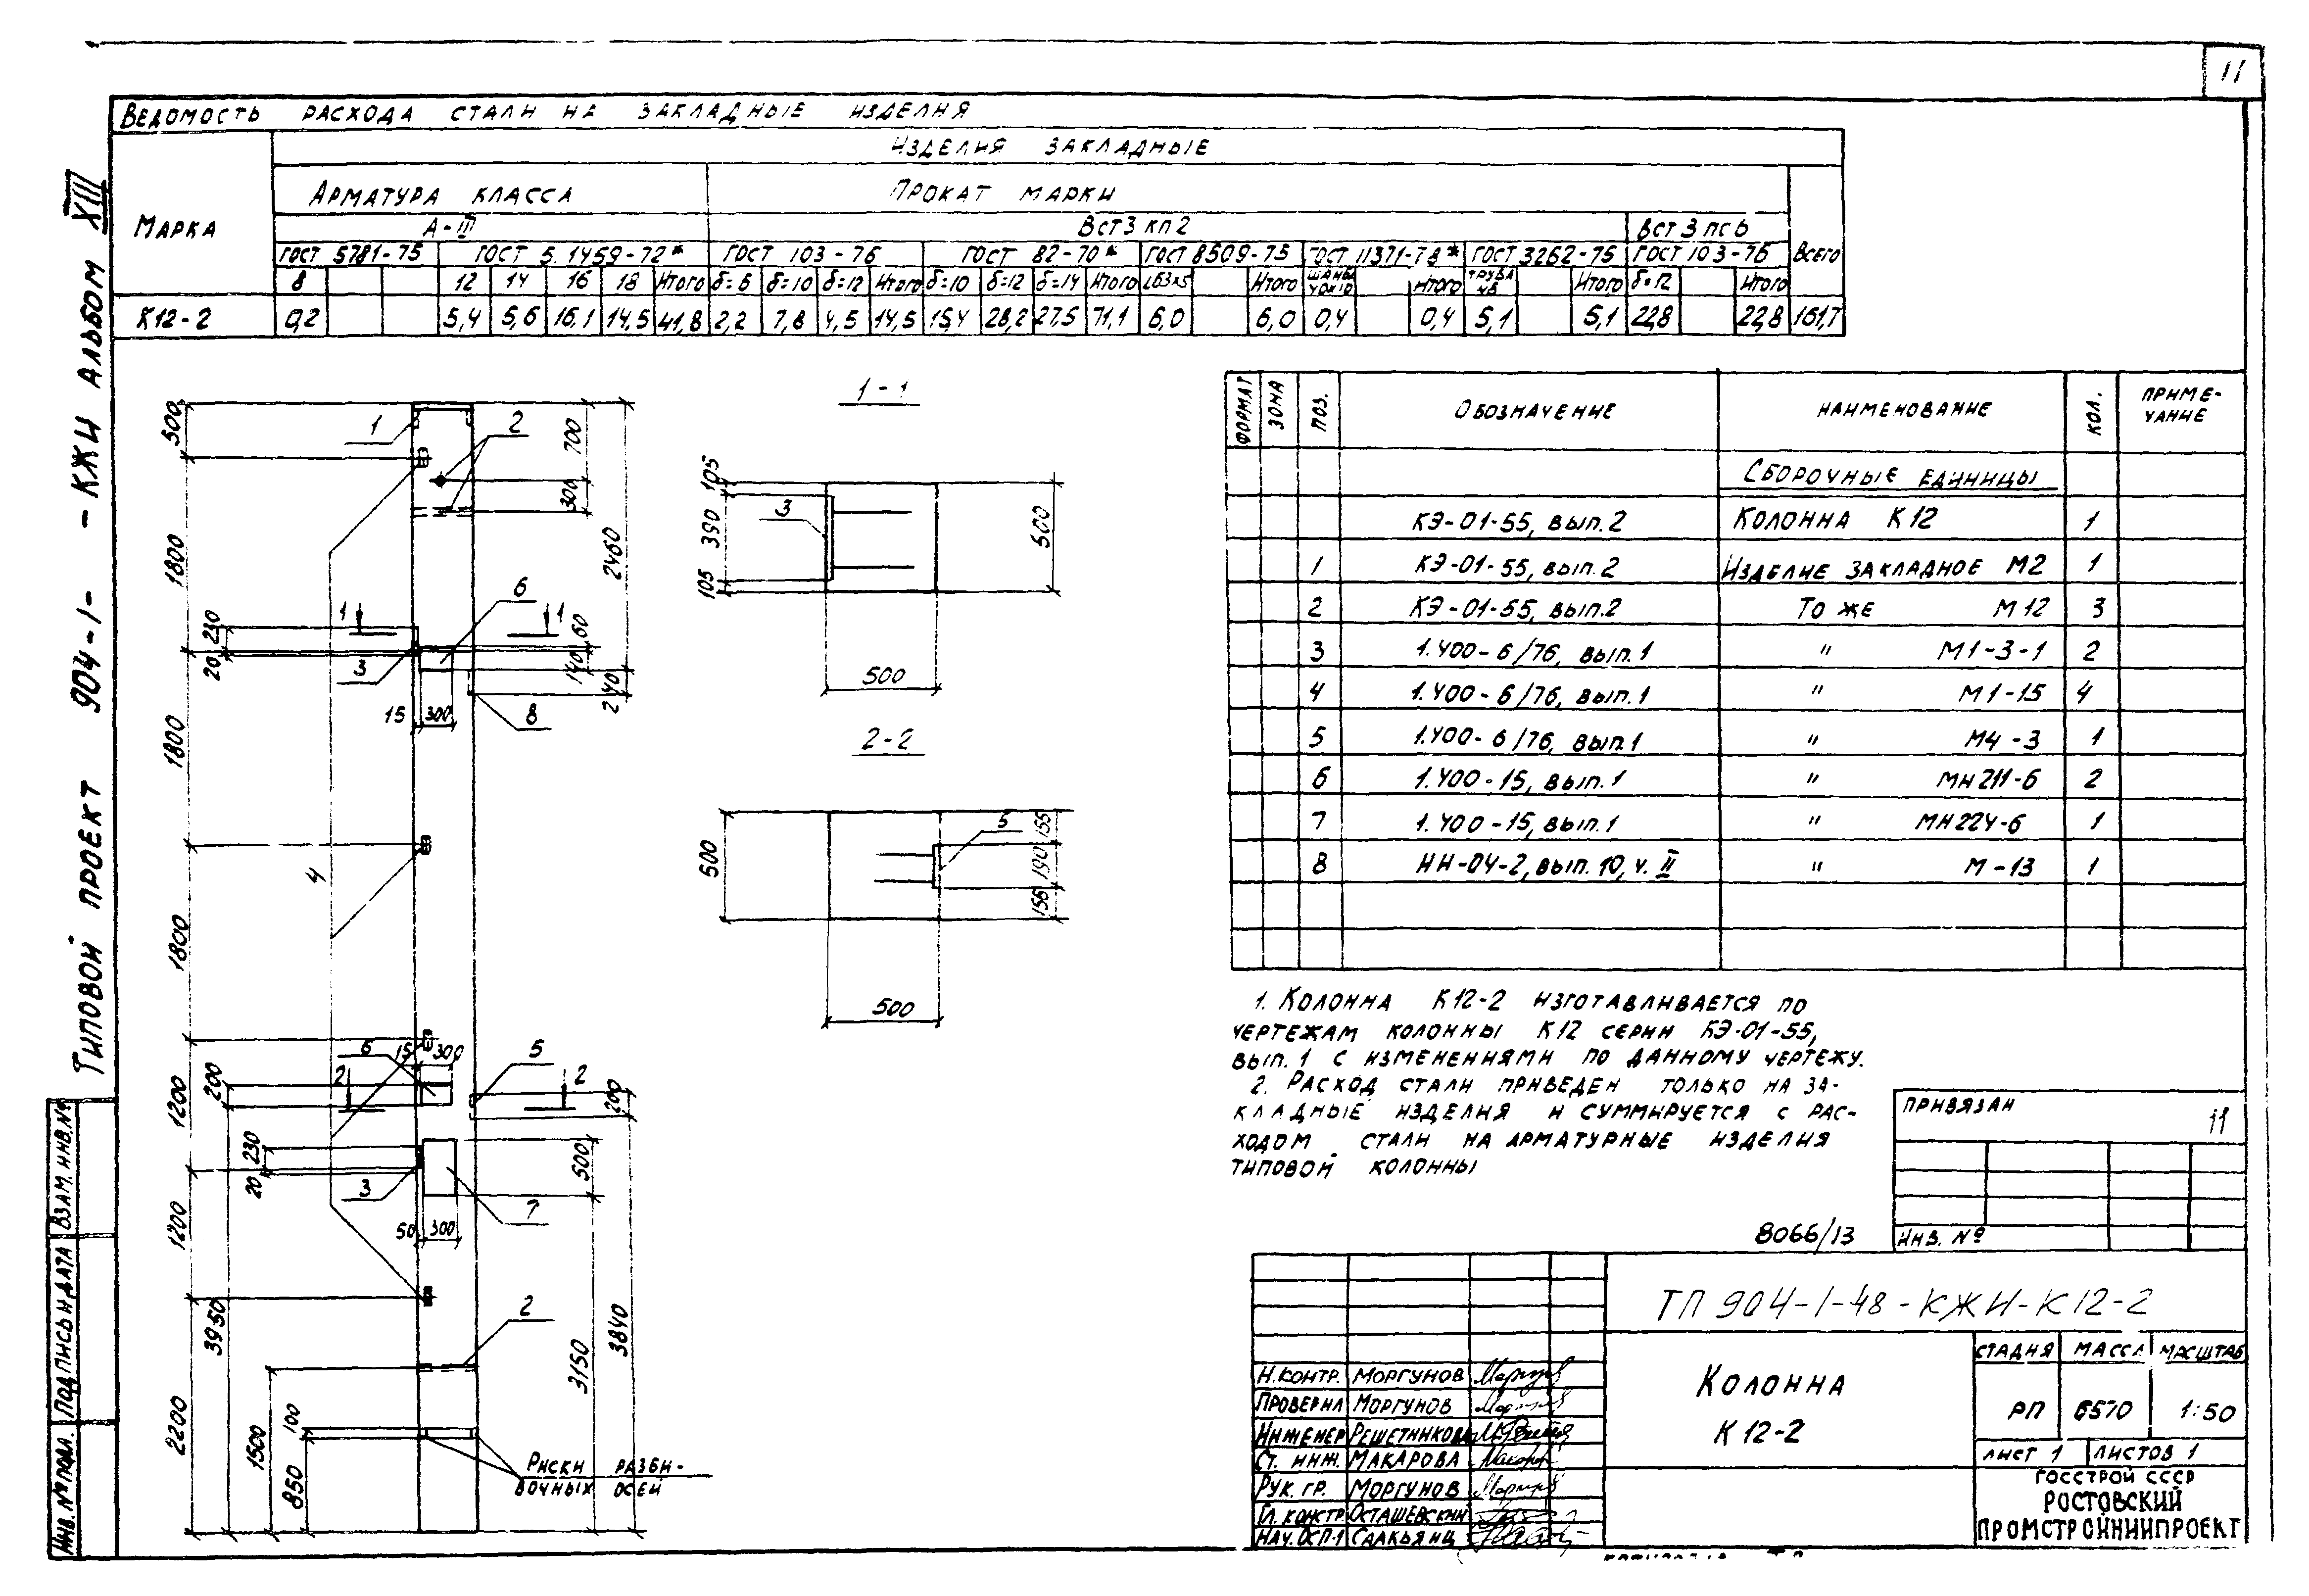 11
Типовой проект 904-1- - КЖИ Альбом XIII
Ведомость расхода стали на закладные изделия
Марка
Изделия закладные
Арматура класса
Прокат марки
Всего
А-III
Вст3кп2
Вст3пс6
ГОСТ 5781-75
ГОСТ 5.1459-72*
ГОСТ 103-76
ГОСТ 82-70*
ГОСТ 8509-75
ГОСТ 11371-78*
ГОСТ 3262-75
ГОСТ 103-76
8 12 14 16 18 Итого δ=6 δ=10 δ=12 Итого δ=10 δ=12 δ=14 Итого L63x5 Итого Шайба Итого Труба Итого δ=12 Итого
К12-2 0,2 5,4 5,6 16,1 14,5 41,8 2,2 7,8 4,5 14,5 15,4 28,2 27,5 71,1 6,0 6,0 0,4 0,4 5,1 5,1 22,8 22,8 161,7
500
1800
1800
1800
1200
1200
2200
230
20
200
230
20
3950
1500
100
850
1
2
700
300
2460
6
1
1
60
140
240
3
15
300
8
4
6
15
300
5
2
2
200
3
50
300
7
500
3150
3840
2
Риски разби-
вочных осей
1-1
105
390
105
3
500
500
2-2
500
5
155
190
155
500
Формат
Зона
Поз.
Обозначение
Наименование
Кол.
Приме-
чание
Сборочные единицы
КЭ-01-55, вып.2 Колонна К12 1
1 КЭ-01-55, вып.2 Изделие закладное М2 1
2 КЭ-01-55, вып.2 То же М12 3
3 1.400-6/76, вып.1 " М1-3-1 2
4 1.400-6/76, вып.1 " М1-15 4
5 1.400-6/76, вып.1 " М4-3 1
6 1.400-15, вып.1 " МН211-6 2
7 1.400-15, вып.1 " МН224-6 1
8 ИИ-04-2, вып.10, ч.II " М-13 1
1. Колонна К12-2 изготавливается по
чертежам колонны К12 серии КЭ-01-55,
вып.1 с изменениями по данному чертежу.
2. Расход стали приведен только на за-
кладные изделия и суммируется с рас-
ходом стали на арматурные изделия
типовой колонны
Привязан
11
Инв. №
8066/13
ТП 904-1-48-КЖИ-К12-2
Колонна
К12-2
Стадия Масса Масштаб
РП 6570 1:50
Лист 1 Листов 1
Госстрой СССР
Ростовский
Промстройниипроект
Н.контр. Моргунов
Проверил Моргунов
Инженер Решетникова
Ст. инж. Макарова
Рук. гр. Моргунов
Гл. констр. Осташевский
Нач. ОСП-1 Саакьянц
Инв. № подл.
Подпись и дата
Взам. инв. №